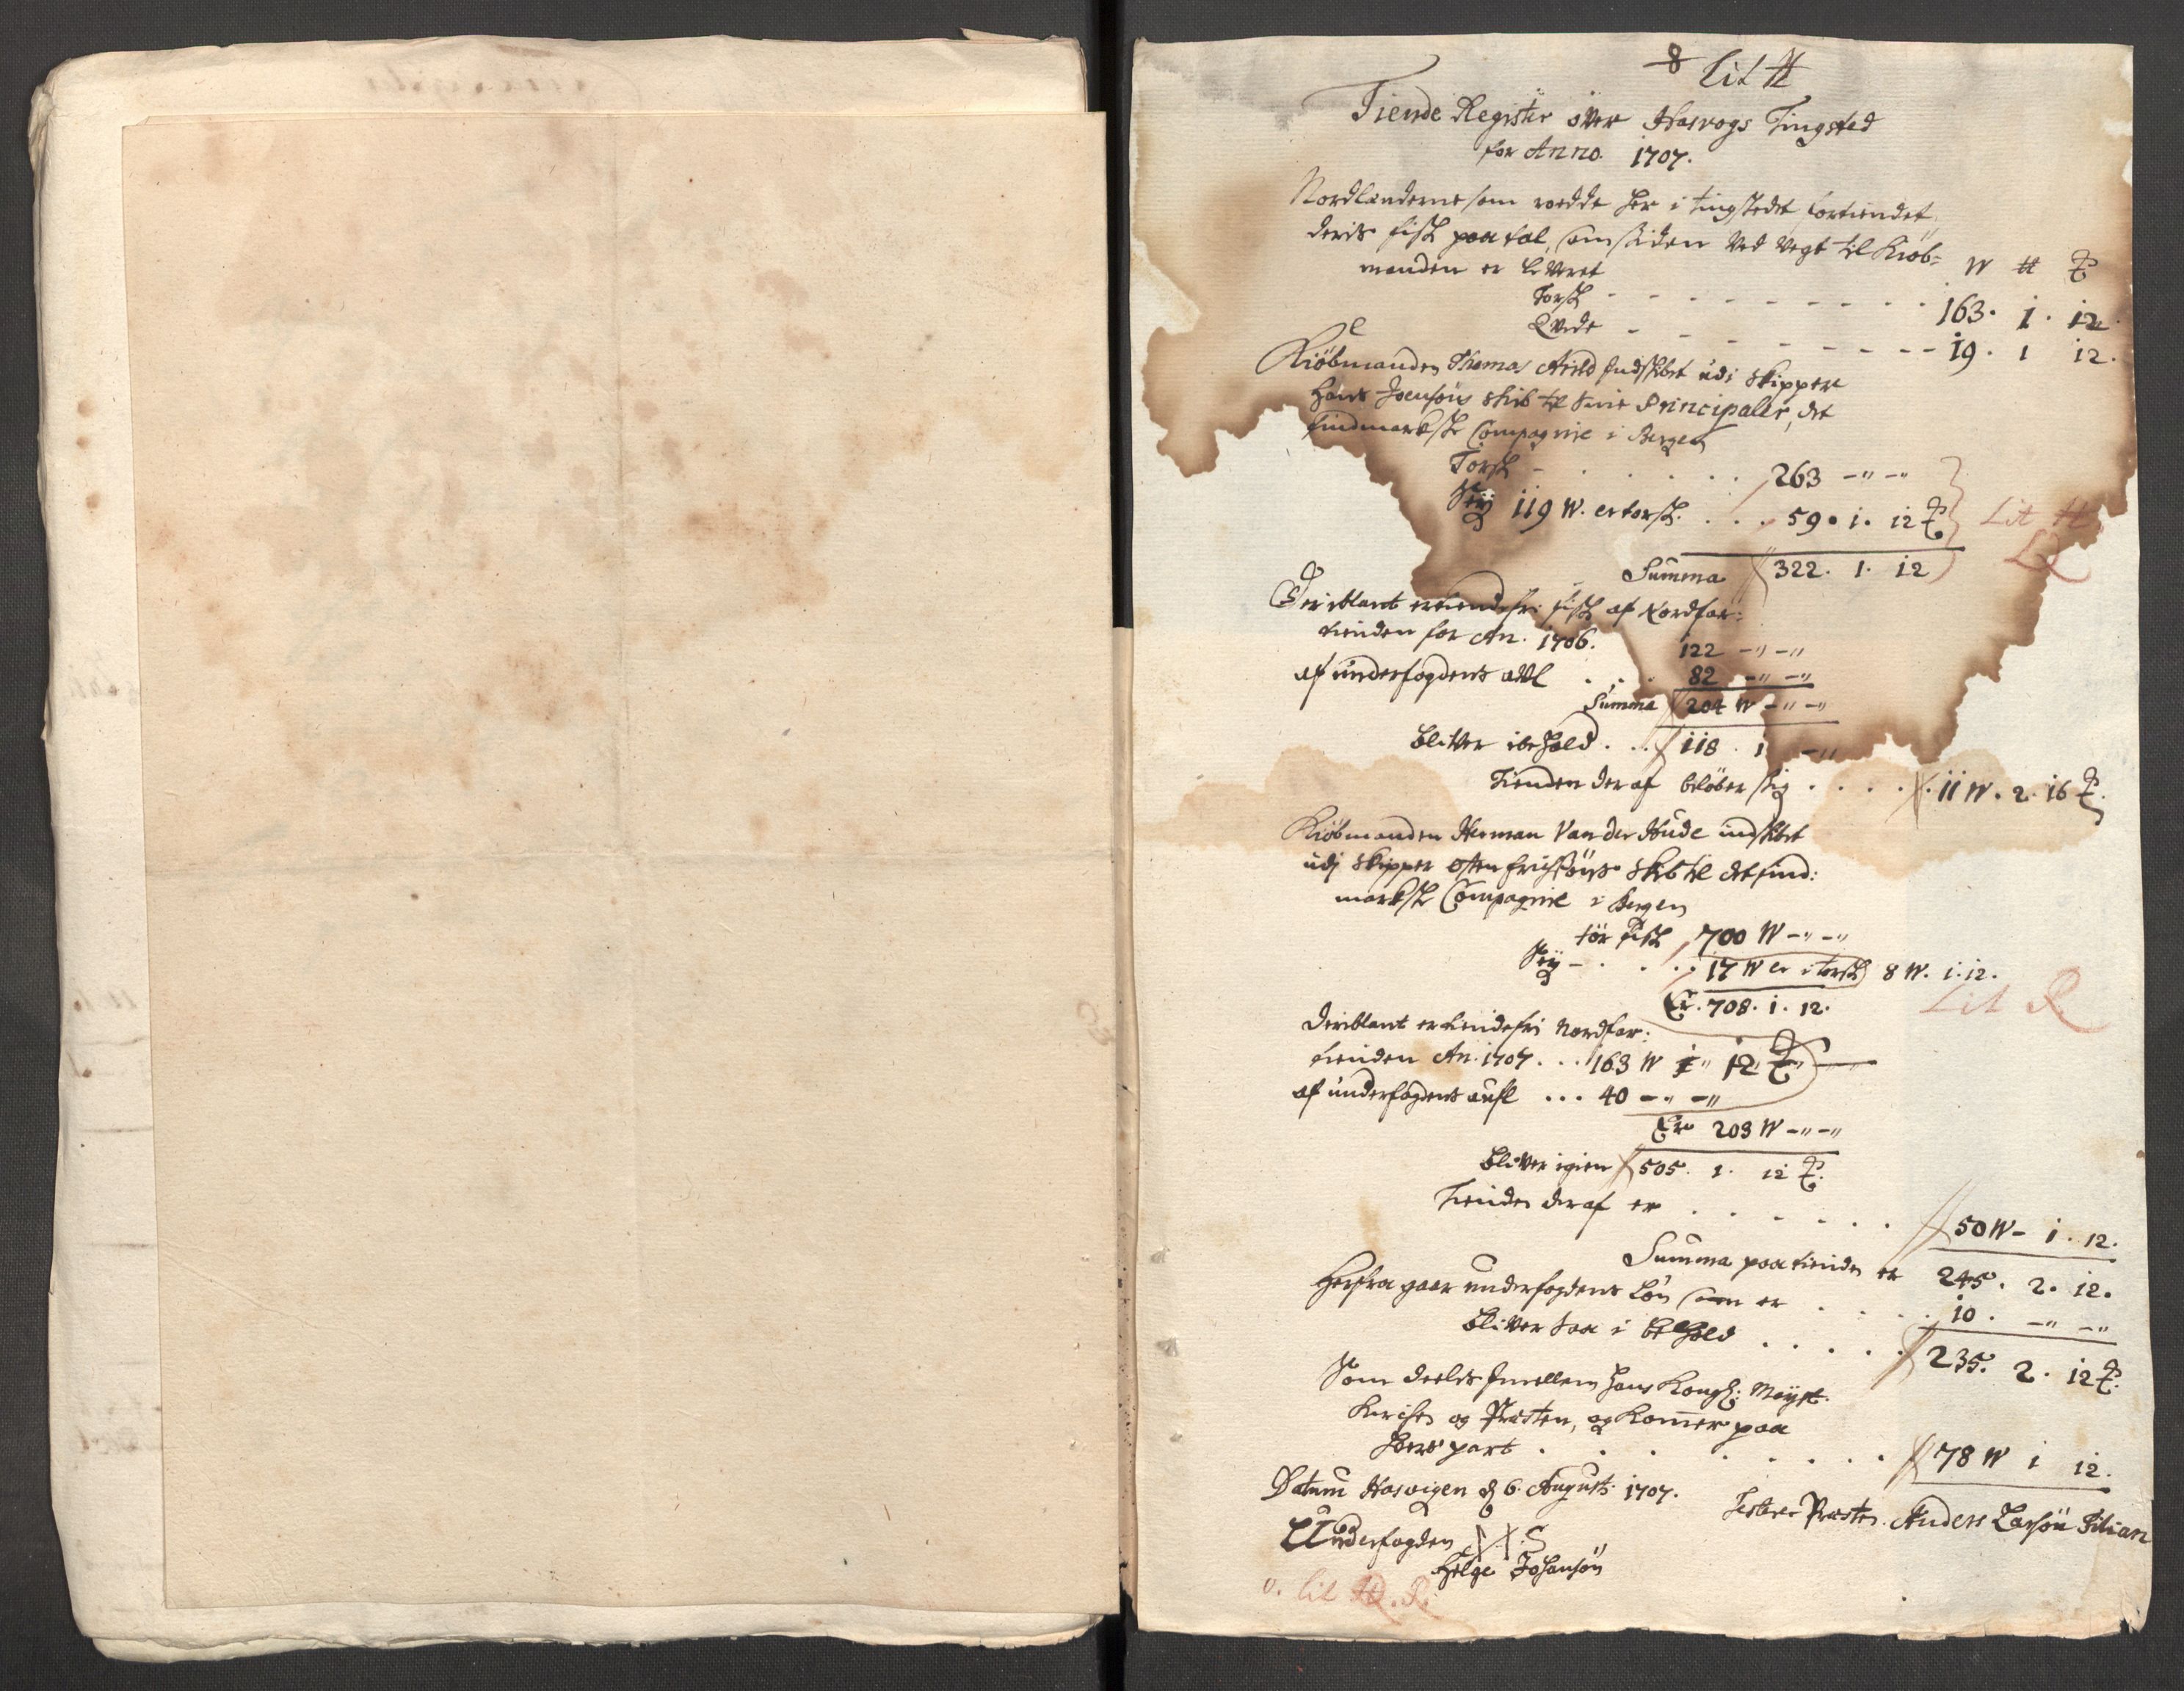 8 Lit H
Tiende Register över Hasvogs Tingsted
for Anno. 1707.
Nordlænderne som roedde her i tingstedet fortiendet
deris fisk paa tal, som siden ved vegt til Kiöb=
manden er leveret W # ℔
Torsk - - - 163. 1. 12.
Qveite - - - 19. 1 12.
Kiöbmanden Thomas Arild indskibet udi Skipper
Hans Joensöns skib til sine Principaler, det
findmarkske Compagnie i Bergen
Torsk - . . . 263 -"-"
Sey 119 W. er torsk. . . . 59. 1. 12 ℔ Lit H
Summa 322. 1. 12
Deriblant er tiendefri fisk af Nordfar:
tienden for An. 1706. 122 -"-"
af underfogdens avl . . . 82 -"-"
Summa 204 W -"-"
bliver i behold . . 118. 1 -"
Tienden deraf belöber sig . . . . 11 W. 2. 16 ℔.
Kiöbmanden Herman Van der Hude indskibet
udj Skipper Osten Erichsöns skib til det find:
markske Compagnie i Bergen
tör fisk 700 W -"-"
Sey - . . . 17 W er i torsk 8 W. 1. 12.
Er. 708. 1. 12. Lit R
Deriblant er tiendefri Nordfar:
tienden An. 1707. . . 163 W 1" 12 ℔
af underfogdens aufl . . . 40 -"-"
Er 203 W -"-"
bliver igien 505. 1. 12 ℔.
Tienden deraf er . . . . . . 50 W - 1. 12.
Summa paa tienden er 245. 2. 12.
Herfra gaar underfogdens Lön som er . . . . 10. -"-"
bliver saa i behold . . . . . 235. 2. 12 ℔.
Som deelis imellem Hans Kongl: Mayst.
Kirken og Præsten, og Kommer paa
hver part . . . . . . . 78 W 1 12.
Datum Hasvigen d 6. Augusti 1707.
Testerer Præsten. Anders Larsön Filian
Underfogden H S
Helge Johansön
v. lit H. R.